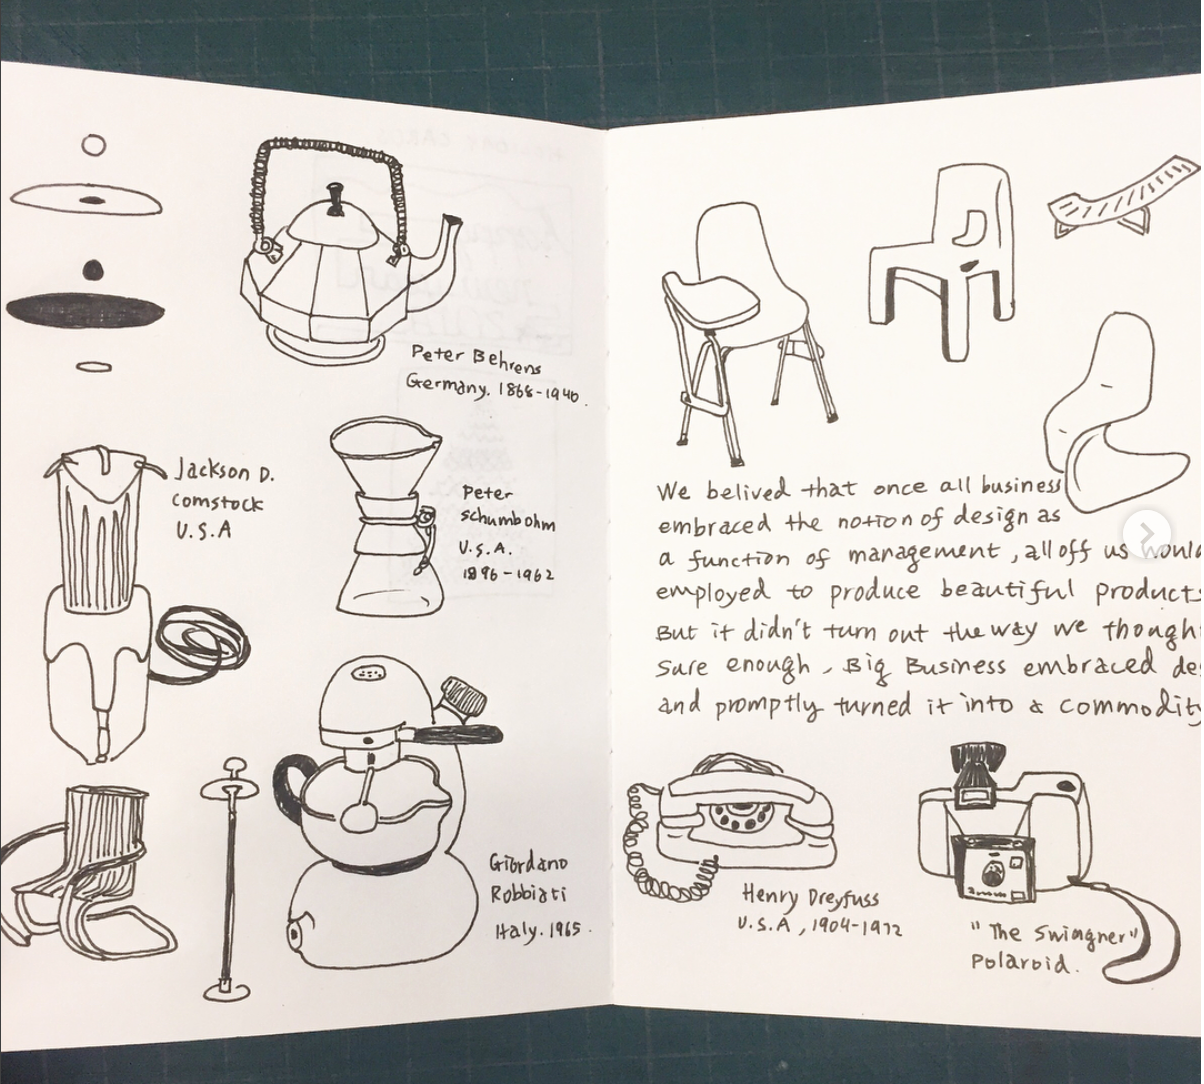 Peter Behrens
Germany. 1868-1940.
Jackson D.
comstock
U.S.A
Peter
schumbohm
U.S.A.
1896-1962
Giordano
Robbiati
Italy. 1965.
We belived that once all business
embraced the notion of design as
a function of management, all off us would
employed to produce beautiful products
But it didn't turn out the way we though
sure enough, Big Business embraced des
and promptly turned it into a commodity
Henry Dreyfuss
U.S.A, 1904-1972
"The Swingner"
Polaroid.